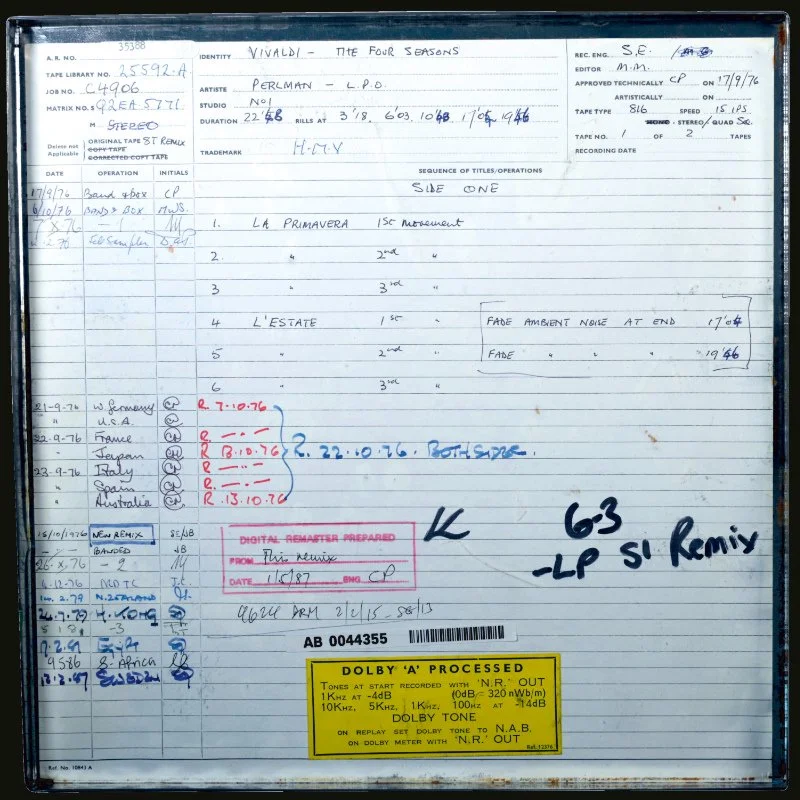 A. R. NO. 35388
TAPE LIBRARY NO. 25592-A
JOB NO. C4906
MATRIX NO. S Q2EA 5771
M STEREO
Delete not Applicable
ORIGINAL TAPE ST REMIX
COPY TAPE
CORRECTED COPY TAPE
IDENTITY VIVALDI - THE FOUR SEASONS
ARTISTE PERLMAN - L.P.O.
STUDIO No1
DURATION 22'48 RILLS AT 3'18, 6'03, 10'43, 17'04, 19'46
TRADEMARK H.M.V
REC. ENG. S.E. /
EDITOR M.M.
APPROVED TECHNICALLY CP ON 17/9/76
ARTISTICALLY ON
TAPE TYPE 816 SPEED 15 IPS
MONO - STEREO/QUAD SQ.
TAPE NO. 1 OF 2 TAPES
RECORDING DATE
DATE OPERATION INITIALS
SEQUENCE OF TITLES/OPERATIONS
SIDE ONE
17/9/76 Band & box CP
/10/76 BAND & BOX MWS.
1. LA PRIMAVERA 1st Movement
2. " 2nd "
3 " 3rd "
4 L'ESTATE 1st " FADE AMBIENT NOISE AT END 17'04
5 " 2nd " FADE " " " 19'46
6 " 3rd "
21-9-76 W Germany R 7-10.76
" U.S.A.
22.9-76 France R — .. — . —
" Japan R 13.10.76 R. 22.10.76. BOTH SIDES.
23.9-76 Italy R — .. — . —
" Spain R. — . — . —
" Australia R .13.10.76
15/10/1976 NEW REMIX SE/JB
BANDED JB
26.X.76 - 2
4.12-76
14.2.79 N.ZEALAND
24.7.79 H. KONG
8 18 -3
7.2.81
9586 S. AFRICA
13.2.87 SWEDEN
DIGITAL REMASTER PREPARED
FROM This remix
DATE 1/5/87 ENG. CP
K
6-3
-LP S1 Remix
9624 DRM 2/2/15_58/13
AB 0044355
DOLBY 'A' PROCESSED
TONES AT START RECORDED WITH 'N.R.' OUT
1KHZ AT -4dB (0dB = 320 nWb/m)
10KHZ, 5KHZ, 1KHZ, 100HZ AT -14dB
DOLBY TONE
ON REPLAY SET DOLBY TONE TO N.A.B.
ON DOLBY METER WITH 'N.R.' OUT
Ref. 12376
Ref. No. 10843 A